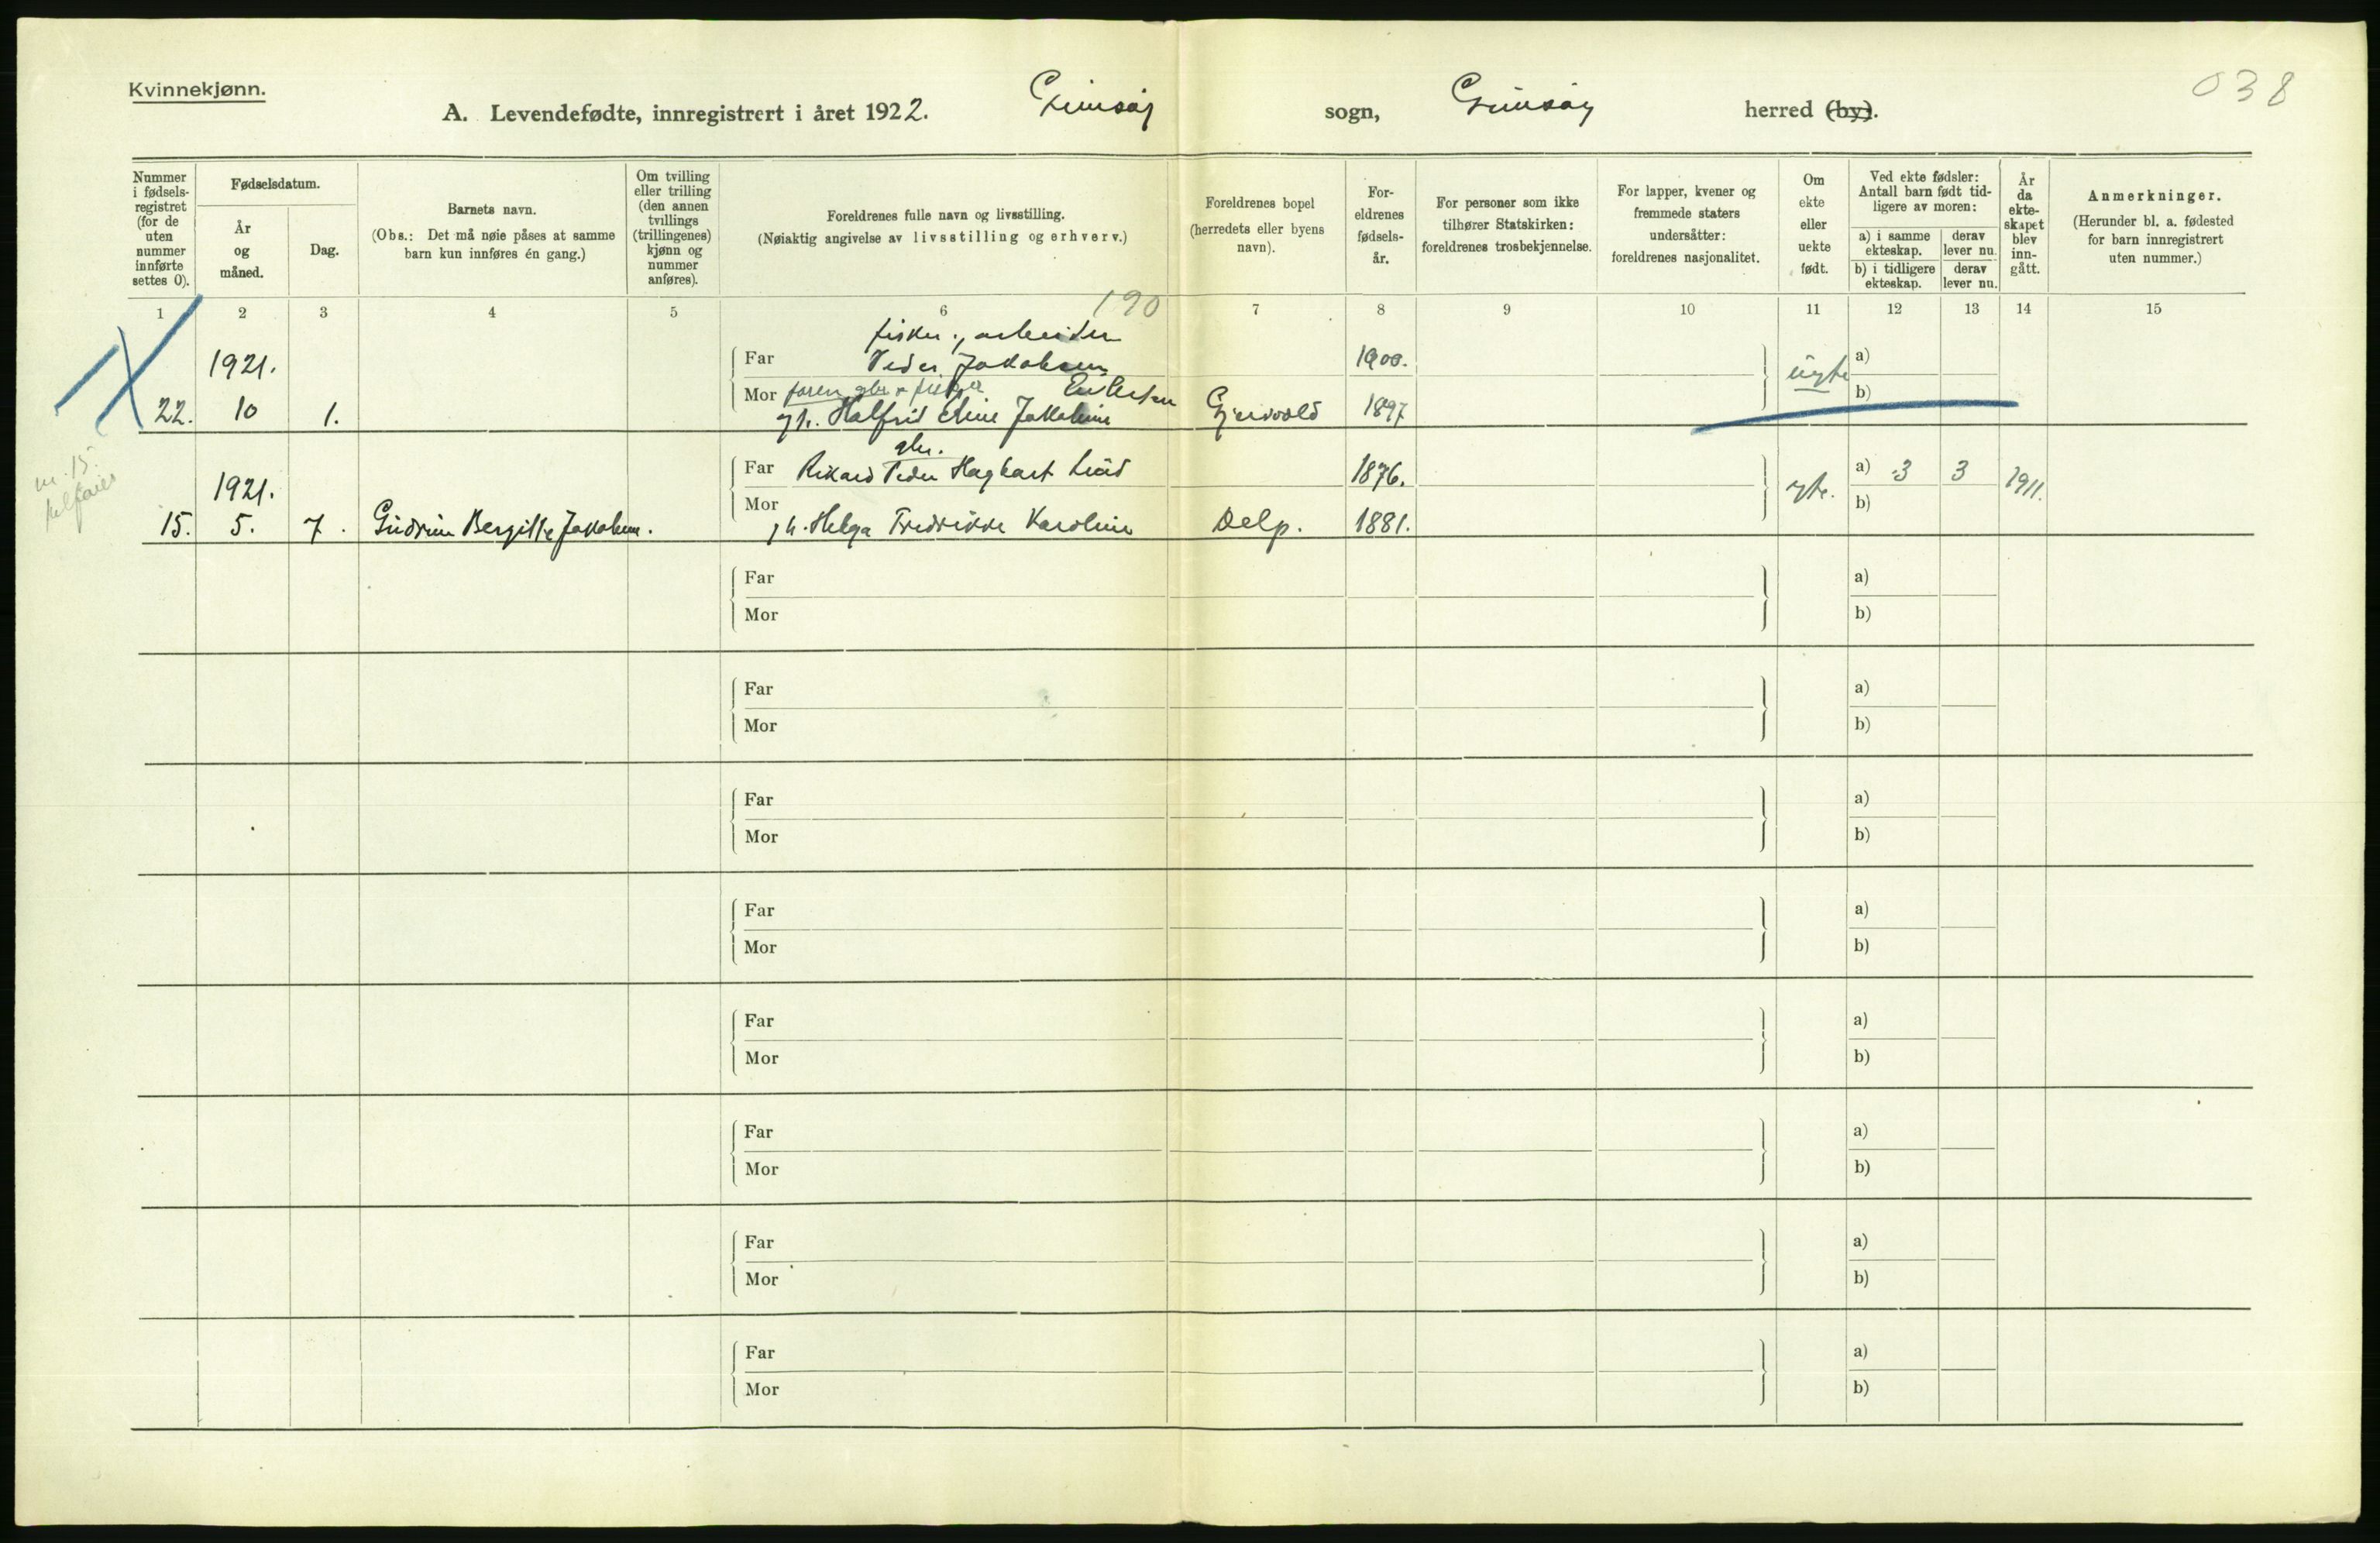 Kvinnekjønn.
038
A. Levendefødte, innregistrert i året 1922. Gimsøy sogn, Gimsøy herred (by).
Nummer i fødsels-registret (for de uten nummer innførte settes 0).
Fødselsdatum.
År og måned.
Dag.
Barnets navn.
(Obs.: Det må nøie påses at samme barn kun innføres én gang.)
Om tvilling eller trilling (den annen tvillings (trillingenes) kjønn og nummer anføres).
Foreldrenes fulle navn og livsstilling.
(Nøiaktig angivelse av livsstilling og erhverv.)
Foreldrenes bopel (herredets eller byens navn).
For-eldrenes fødsels-år.
For personer som ikke tilhører Statskirken: foreldrenes trosbekjennelse.
For lapper, kvener og fremmede staters undersåtter: foreldrenes nasjonalitet.
Om ekte eller uekte født.
Ved ekte fødsler: Antall barn født tid-ligere av moren:
a) i samme ekteskap.
derav lever nu.
b) i tidligere ekteskap.
derav lever nu.
År da ekte-skapet blev inn-gått.
Anmerkninger.
(Herunder bl. a. fødested for barn innregistrert uten nummer.)
1 2 3 4 5 6 7 8 9 10 11 12 13 14 15
190
fisker, arbeider
1921. Far Peder Jakobsen 1900. uegte a)
Mor b)
22. 10 1. Halfrid Jakobine 1897
nr. 15.
gbr.
1921. Far Rikard Peder Hagbart 1876. a) 3 3 1911.
Mor egte. b)
15. 5. 7. Gudrun Bergitte Jakobine. Helga Fredrikke Karoline Delp. 1881.
Far a)
Mor b)
Far a)
Mor b)
Far a)
Mor b)
Far a)
Mor b)
Far a)
Mor b)
Far a)
Mor b)
Far a)
Mor b)
Far a)
Mor b)